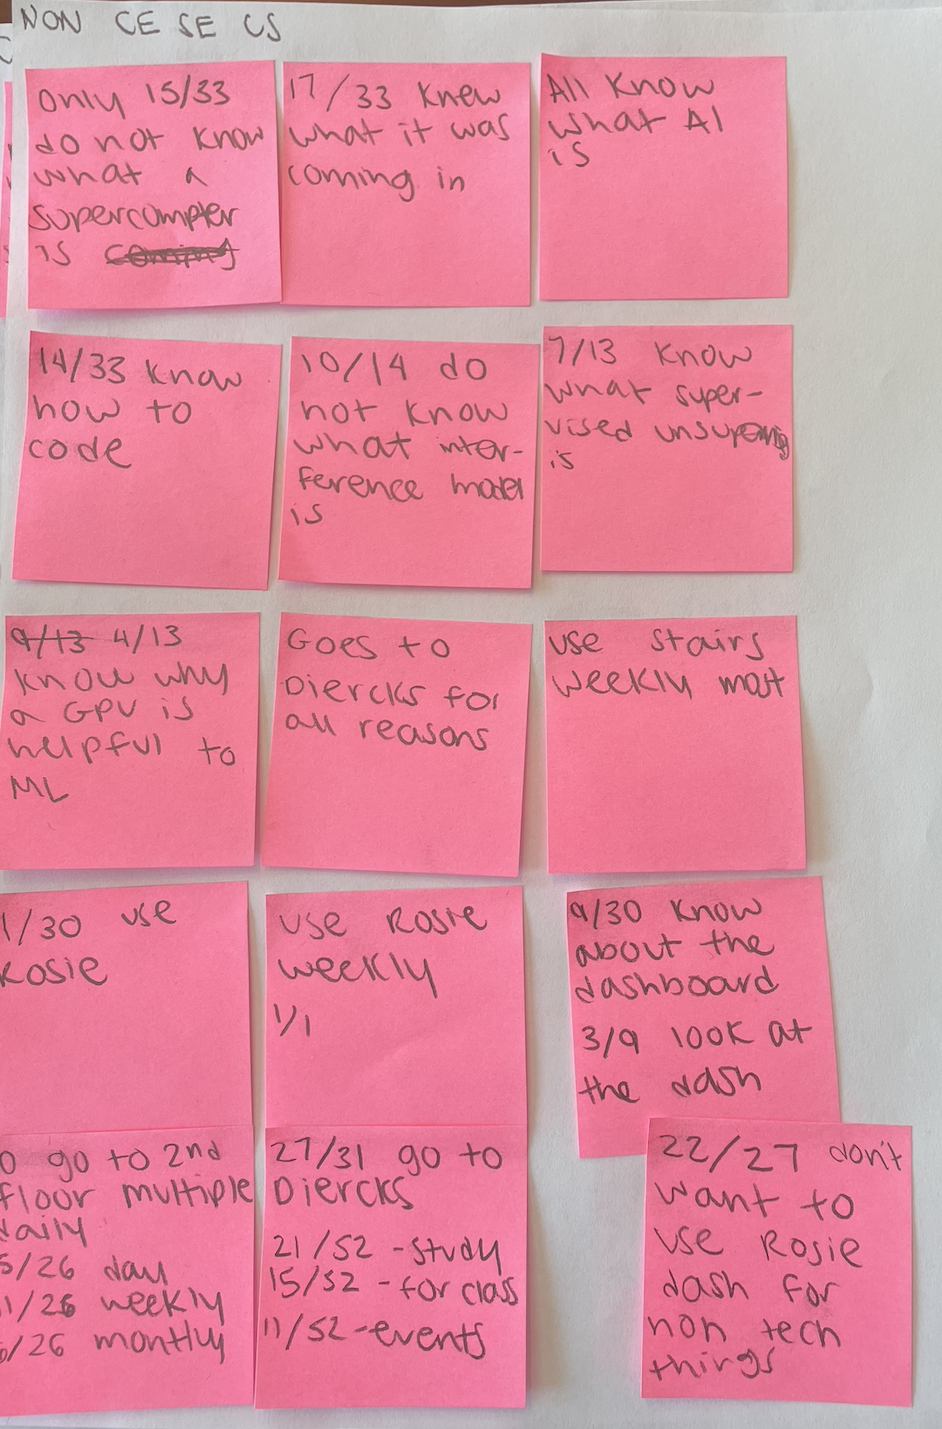 NON CE SE CS
Only 15/33
do not know
what a
supercompter
is
17/33 knew
what it was
coming in
All Know
what AI
is
14/33 know
how to
code
10/14 do
not know
what inter-
ference model
is
7/13 know
what super-
vised
is
4/13
know why
a GPU is
helpful to
ML
Goes to
Diercks for
all reasons
use stairs
weekly most
1/30 use
Rosie
use Rosie
weekly
1/1
9/30 know
about the
dashboard
3/9 look at
the dash
0 go to 2nd
floor multiple
daily
5/26 day
1/26 weekly
/26 montly
27/31 go to
Diercks
21/52 - study
15/52 - for class
11/52 - events
22/27 don't
want to
use Rosie
dash for
non tech
things